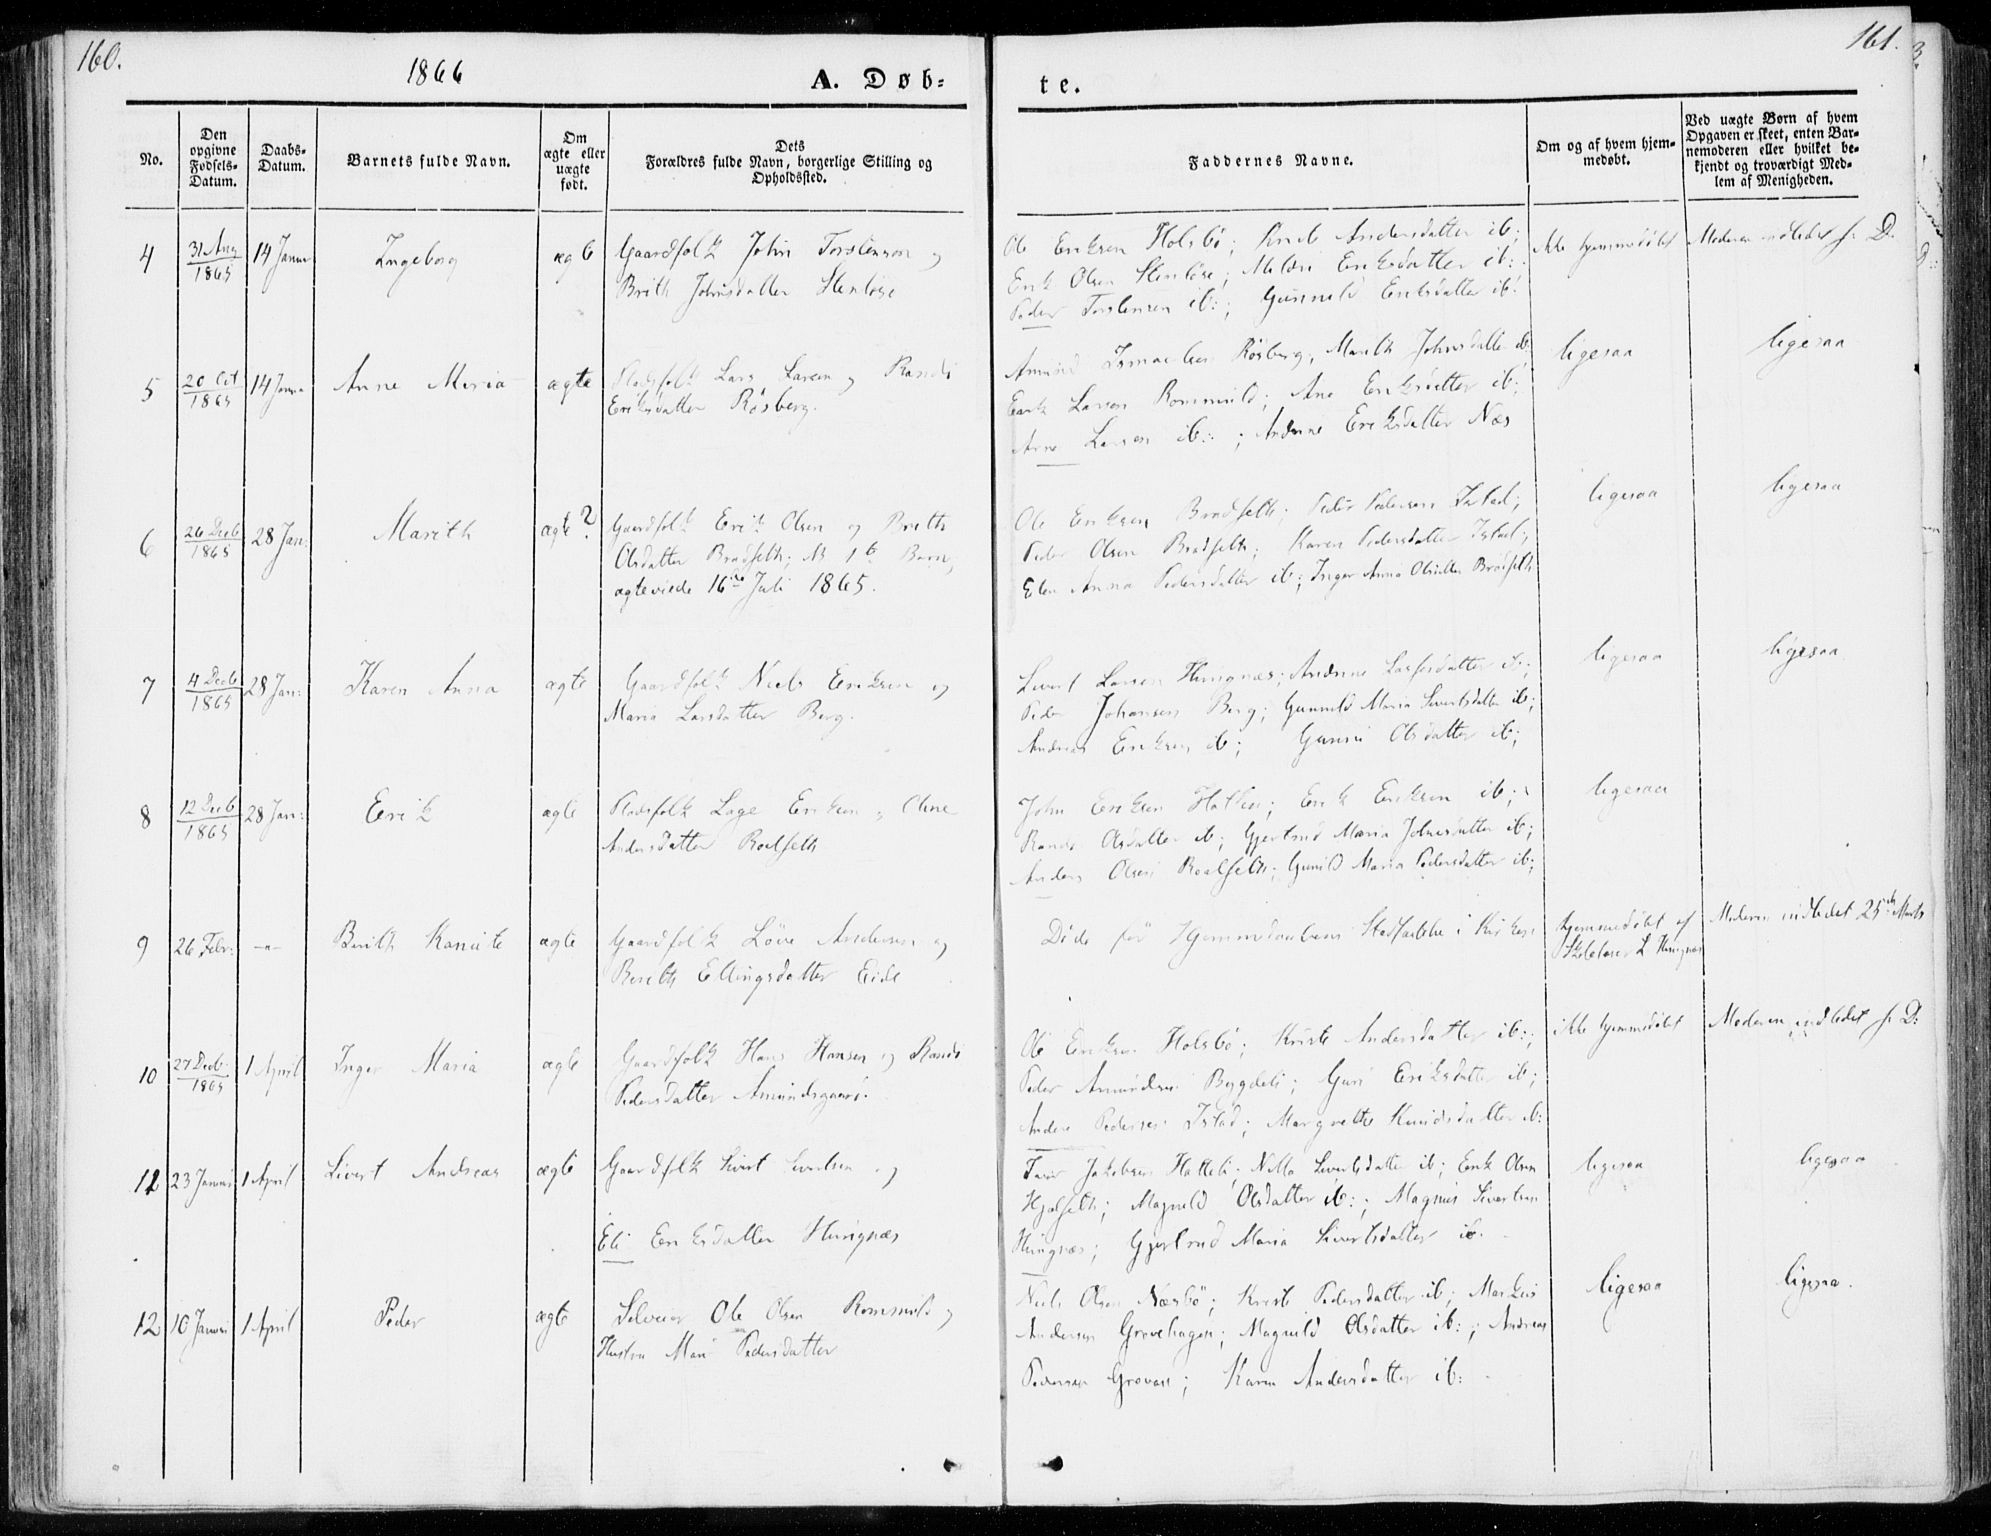 160.
1866
A. Døb=
te.
161.
No.
Den opgivne Fødsels-Datum.
Daabs-Datum.
Barnets fulde Navn.
Om ægte eller uægte født.
Dets Forældres fulde Navn, borgerlige Stilling og Opholdssted.
Faddernes Navne.
Om og af hvem hjem-medøbt.
Ved uægte Børn af hvem Opgaven er skeet, enten Bar-nemoderen eller hvilket be-kjendt og troværdigt Med-lem af Menigheden.
4 31 Aug 1865 14 Januar Ingeborg ægte Gaardfolk John Torstensen og
Brith Johnsdatter Stenløse
Ole Eriksen Holsbö; Andersdatter ib;
Erik Olsen Stenløse; Eriksdatter ib:
Peder Torstensen ib:; Gunnild Eriksdatter ib:
ikke hjemmedøbt Moderen indledet s. D.
5 20 Oct 1865 14 Janua Anne Maria ægte Pladsfolk Lars Larsen og Randi
Eriksdatter Rösberg.
Amund Ismaelsen Rösberg, Marith Johnsdatter ib
Erik Larsen Rommuld; Ane Eriksdatter ib;
Arne Larsen ib:; Andrine Eriksdatter Næs
ligesaa ligesaa
6 26 Decb 1865 28 Jan: Marith ægte? Gaardfolk Erik Olsen og Brith
Olsdatter Bradseth; 1te Barn,
ægteviede 16de Juli 1865.
Ole Eriksen Bradseth; Peder Pedersen Istad;
Peder Olsen Bradseth; Karen Pedersdatter Istad;
Elen Anna Pedersdatter ib; Inger Anna Olsdatter Bradseth
ligesaa ligesaa
7 4 Decb 1865 28 Jan: Karen Anna ægte Gaardfolk Niels Eriksen og
Maria Larsdatter Berg.
Sivert Larsen Hungnæs; Andrine Larsdatter ib;
Peder Johansen Berg; Gunnild Maria Sivertsdatter ib;
Andreas Eriksen ib; Olsdatter ib;
ligesaa ligesaa
8 12 Decb 1865 28 Jan: Erik ægte Pladsfolk Lage Eriksen og Oline
Andersdatter Roalseth
John Eriksen; Erik Eriksen ib;
Randi Olsdatter ib; Gjertrud Maria Johnsdatter ib;
Anders Olsen Roalseth; Gunild Maria Pedersdatter ib;
ligesaa
9 26 Febr: -"- Berith ægte Gaardfolk Andersen og
Berith Ellingsdatter Eide
Döde för Hjemmedaabens Stadfæstelse i Kirken
hjemmedøbt af Skolelærer L Hungnæs
Moderen indledet 25de Marts
10 27 Decb: 1865 1 April Inger Maria ægte Gaardfolk Hans Hansen og Randi
Pedersdatter Amundsgaard.
Ole Eriksen Holsbö; Andersdatter ib:;
Peder Amundsen Bygdeli; Guri Eriksdatter ib;
Anders Pedersen Istad; Margrethe Knudsdatter ib:
ikke hjemmedøbt Moderen indledet s. D:
11 23 Januar 1 April Sivert Andreas ægte Gaardfolk Sivert Sivertsen og
Eli Eriksdatter Hungnæs
Iver Jakobsen Hatteli; Sivertsdatter ib; Erik Olsen
Hjelseth; Magnild Olsdatter ib:; Magnus Sivertsen
Hungnæs; Gjertrud Maria Sivertsdatter ib.
ligesaa ligesaa
12 10 Januar 1 April Peder ægte Selveier Ole Olsen Rommuld og
Hustru Mari Pedersdatter
Niels Olsen Næsbö; Pedersdatter ib; Markus
Andersen Grovehagen; Magnild Olsdatter ib:; Andreas
Pedersen Grovan; Karen Andersdatter ib:
ligesaa ligesaa.